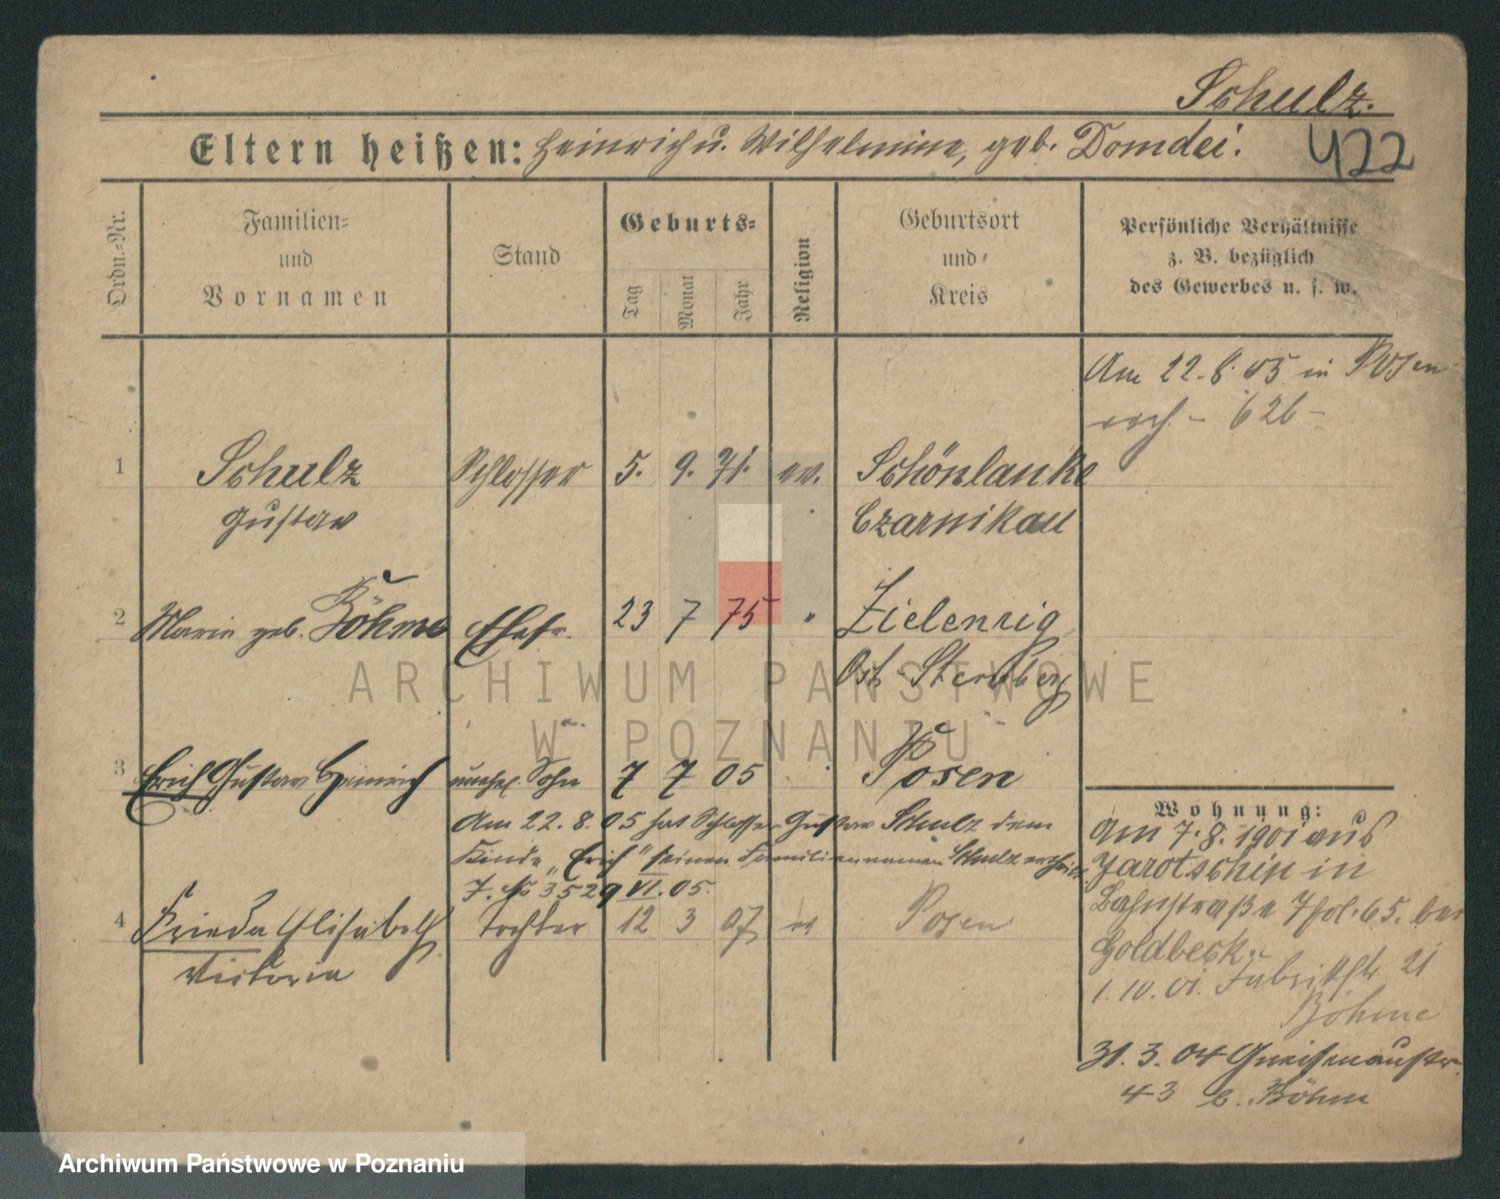 Schulz.
Eltern heißen: Heinrich u. Wilhelmine, geb. Domdei.
422
Ordn.=Nr.
Familien=
und
Vornamen
Stand
Geburts=
Tag
Monat
Jahr
Religion
Geburtsort
und
Kreis
Persönliche Verhältnisse
z. B. bezüglich
des Gewerbes u. s. w.
Am 22.8.05 in Posen
626
1 Schulz Schlosser 5. 9. 71. ev. Schönlanke
Gustav Czarnikau
2 Marie geb. Böhme Ehefr. 23 7 75 " Zielenzig
Ost-Sternberg
3 Erich Gustav Heinrich unehel. Sohn 7 7 05 Posen
Am 22.8.05 hat Schlosser Gustav Schulz dem
Kinde "Erich" seinen Familiennamen Schulz erteilt
J. № 3529 VI. 05.
4 Frieda Elisabeth Tochter 12 3 07 ev Posen
Victoria
Wohnung:
Am 7.8.1901 aus
Jarotschin in
Bahnstraße 65. bei
Goldbeck.
1.10.01. Fabrikstr. 21
Böhme
31.3.04 Gneisenaustr.
43 b. Böhm
ARCHIWUM PAŃSTWOWE
W POZNANIU
Archiwum Państwowe w Poznaniu